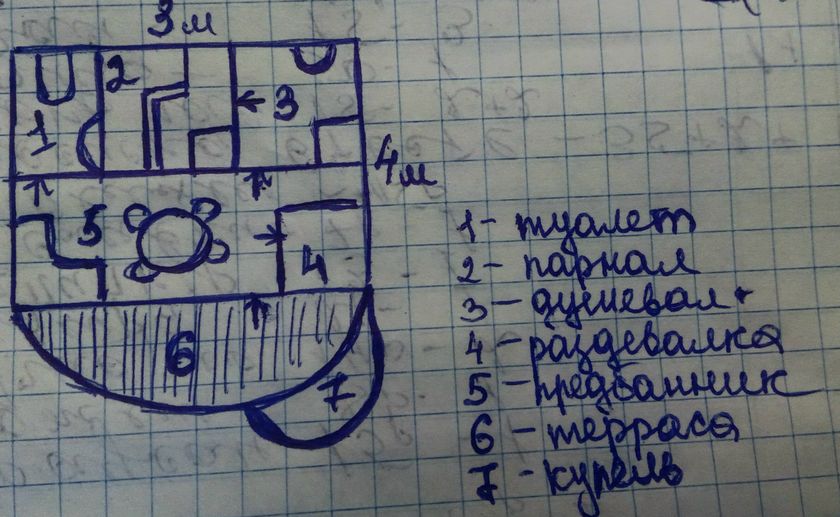 3 м
2
3
1
4 м
5
4
6
7
1 - туалет
2 - парная
3 - душевая
4 - раздевалка
5 - предбанник
6 - терраса
7 - купель